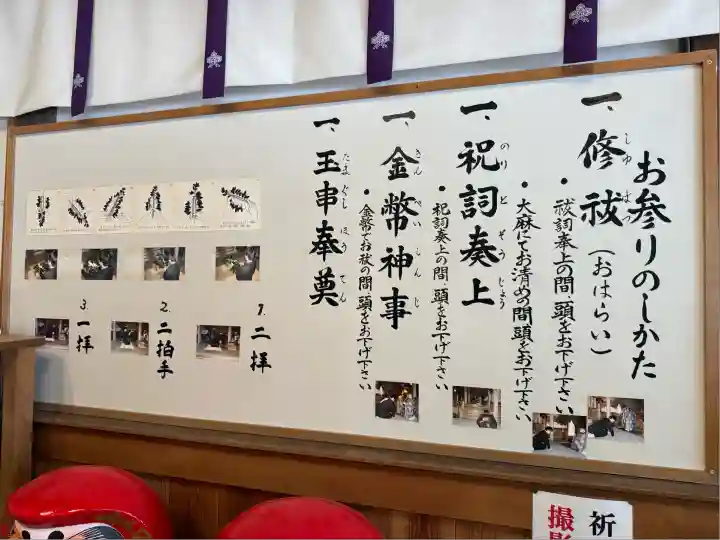 お参りのしかた
一、修祓（おはらい）
しゅばつ
・祓詞奉上の間、頭をお下げ下さい
・大麻にてお清めの間頭をお下げ下さい
一、祝詞奏上
のりとそうじょう
・祝詞奏上の間、頭をお下げ下さい
一、金幣神事
きんぺいしんじ
・金幣でお祓の間、頭をお下げ下さい
一、玉串奉奠
たまぐしほうてん
1. 二拝
2. 二拍手
3. 一拝
祈
撮影